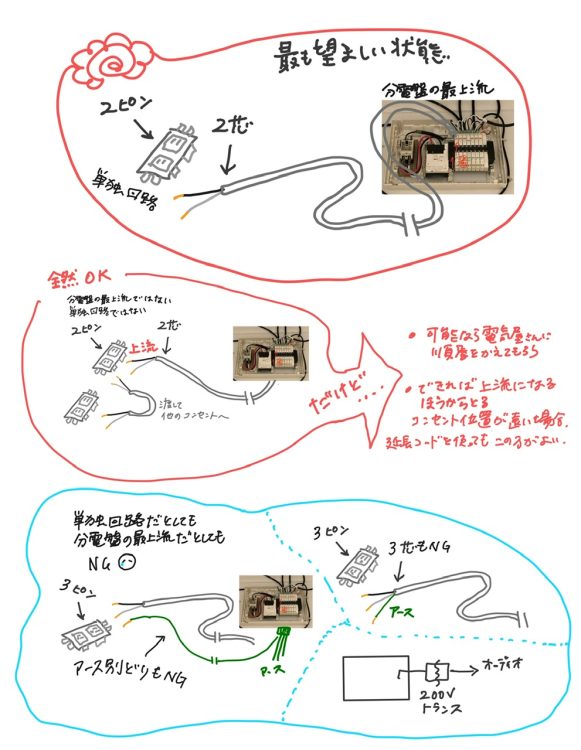 最も望ましい状態
分電盤の最上流
2ピン
2芯
単独回路
全然OK
分電盤の最上流ではない
単独回路ではない
2ピン
上流
2芯
渡して
他のコンセントへ
だけど・・・・
• 可能なら電気屋さんに
順番をかえてもらう
• できれば上流になる
ほうからとる
コンセント位置が遠い場合、
延長コードを使ってもこの方がよい.
単独回路だとしても
分電盤の最上流だとしても
NG
3ピン
アース別どりもNG
アース
3ピン
3芯もNG
アース
オーディオ
200V
トランス